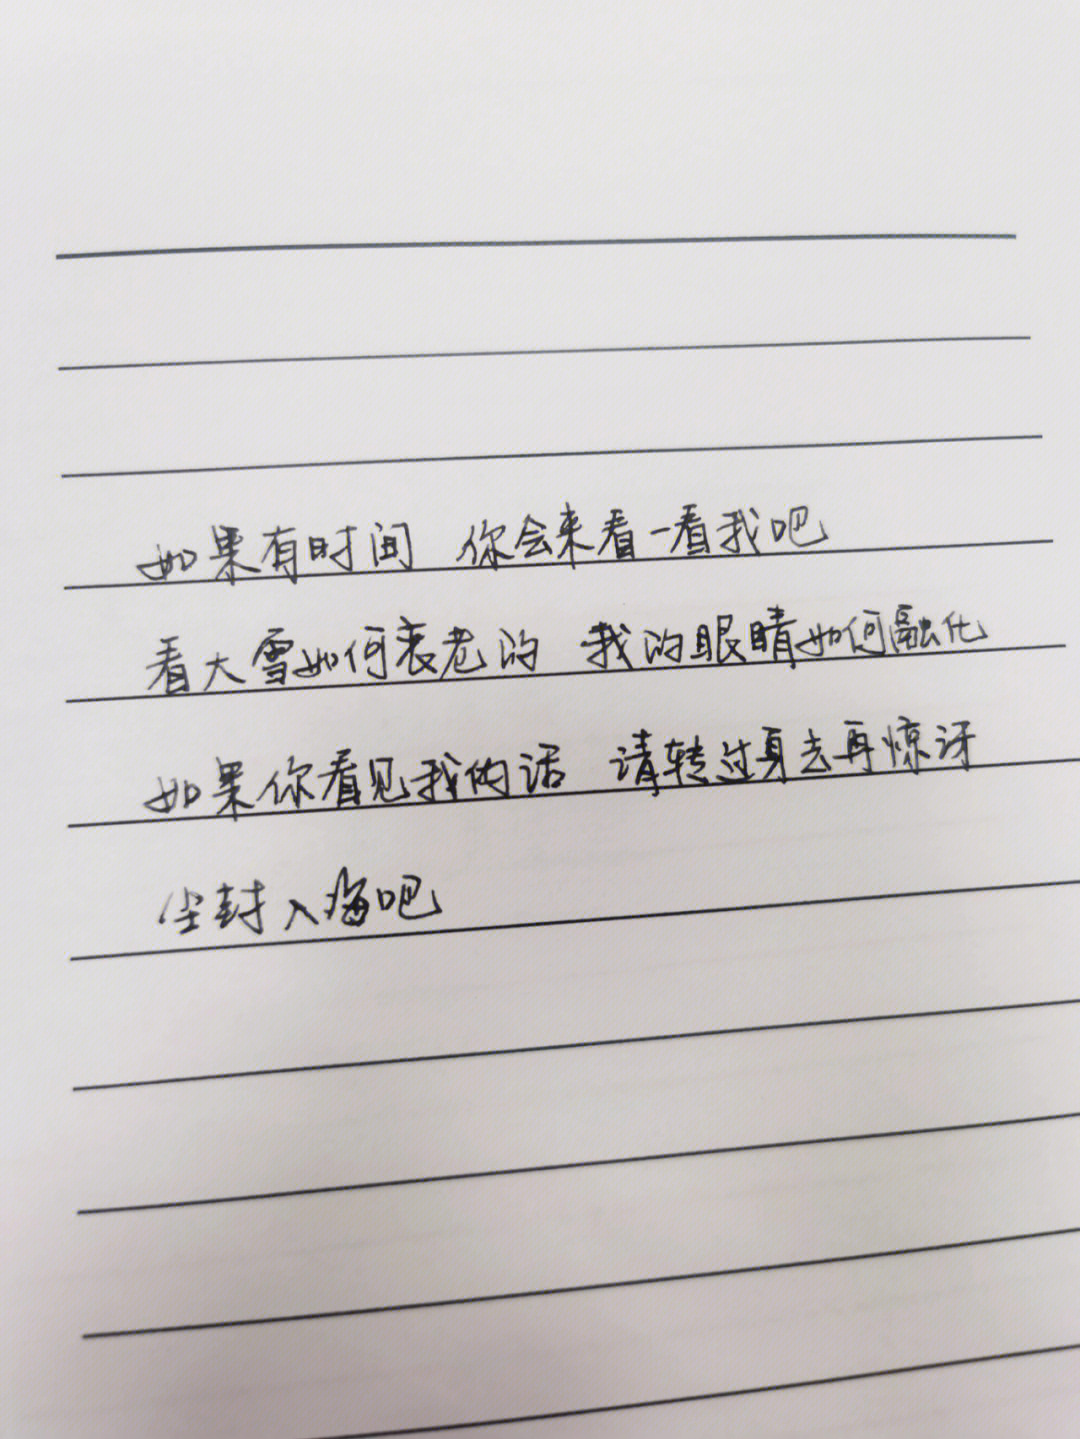 如果有时间 你会来看一看我吧
看大雪如何衰老的 我的眼睛如何融化
如果你看见我的话 请转过身去再惊讶
尘封入海吧